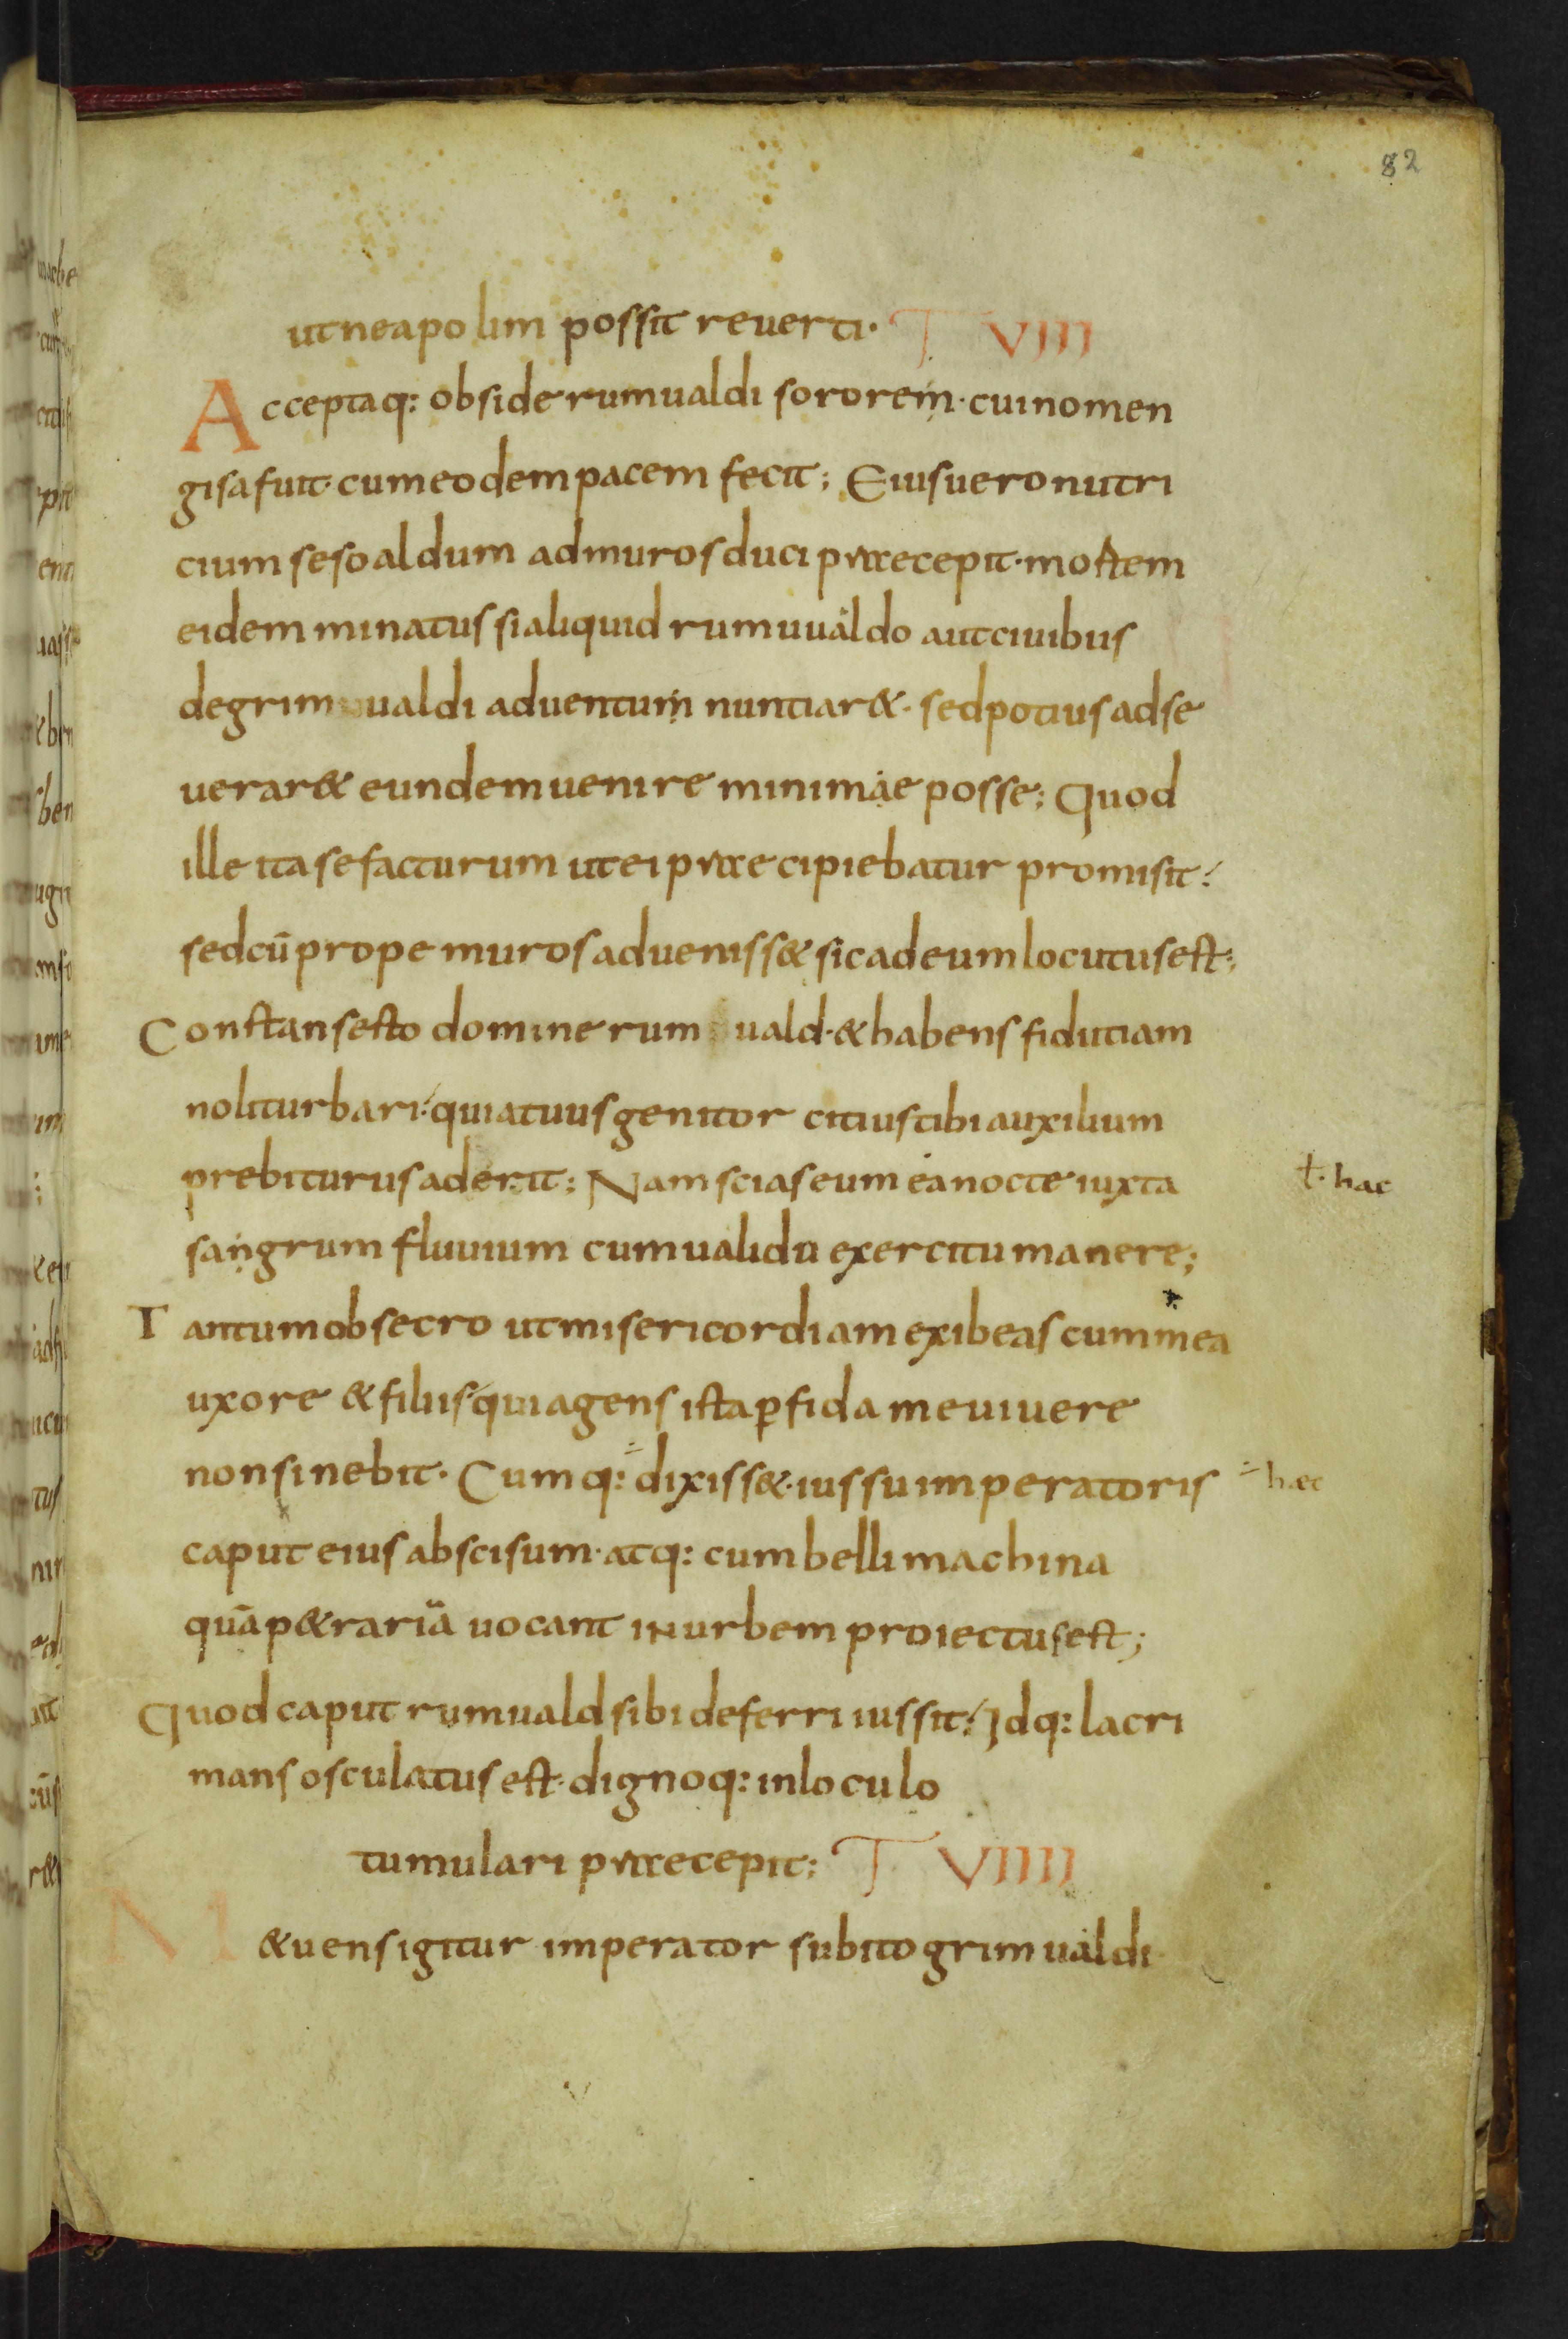 82
ut neapolim possit reuerti· T VIII
Acceptaq: obside rumualdi sororem· cui nomen
gisa fuit· cum eodem pacem fecit; Eius uero nutri
cium sesoaldum ad muros duci praecepit· mortem
eidem minatus si aliquid rumuualdo aut ciuibus
de grimualdi aduentum nuntiar&· sed potius adse
uerar& eundem uenire minimae posse; Quod
ille ita se facturum ut ei praecipiebatur promisit:
sed cū prope muros adueniss& sic ad eum locutus est;
Constans esto domine rumuald· & habens fidutiam
noli turbari: quia tuus genitor citius tibi auxilium
prebiturus aderit; Nam scias eum ea nocte iuxta
ł· hac
sangrum fluuium cum ualidu exercitu manere;
Tantum obsecro ut misericordiam exibeas cum mea
uxore & filiis quia gens ista ꝑfida me uiuere
non sinebit· Cumq: dixiss&· iussu imperatoris
haec
caput eius abscisum· atq: cum belli machina
quā p&rariā uocant in urbem proiectus est;
Quod caput rumuald sibi deferri iussit: Idq: lacri
mans osculatus est· dignoq: in loculo
tumulari praecepit; T VIIII
M&uens igitur imperator subito grimualdi